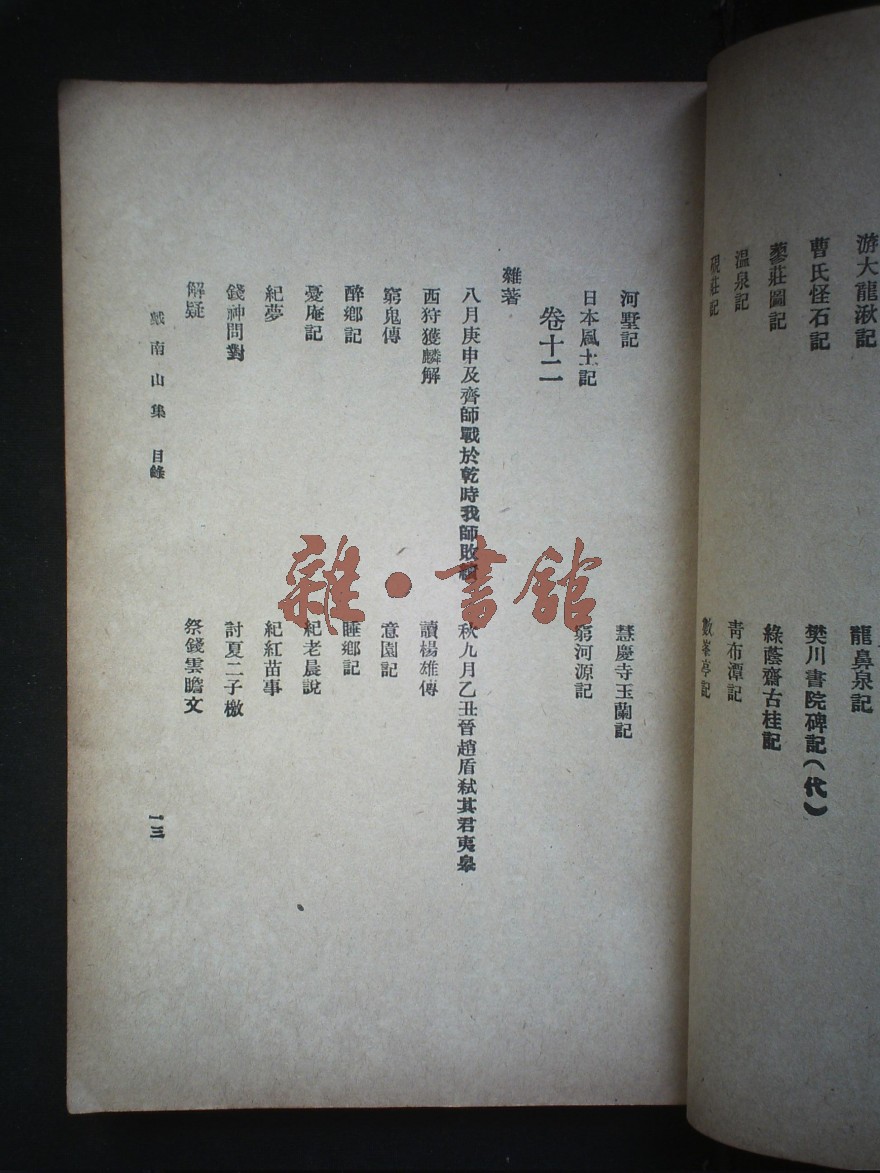 游大龍湫記
龍鼻泉記
曹氏怪石記
樊川書院碑記(代)
蓼莊圖記
綠蔭齋古桂記
溫泉記
青布潭記
硯莊記
數峯亭記
河墅記
慧慶寺玉蘭記
日本風土記
窮河源記
卷十二
雜著
八月庚申及齊師戰於乾時我師敗績
秋九月乙丑晉趙盾弒其君夷皋
西狩獲麟解
讀楊雄傳
窮鬼傳
意園記
醉鄉記
睡鄉記
憂庵記
紀老農說
紀夢
紀紅苗事
錢神問對
討夏二子檄
解疑
祭錢雲瞻文
戴南山集 目錄
一三
雜·書館